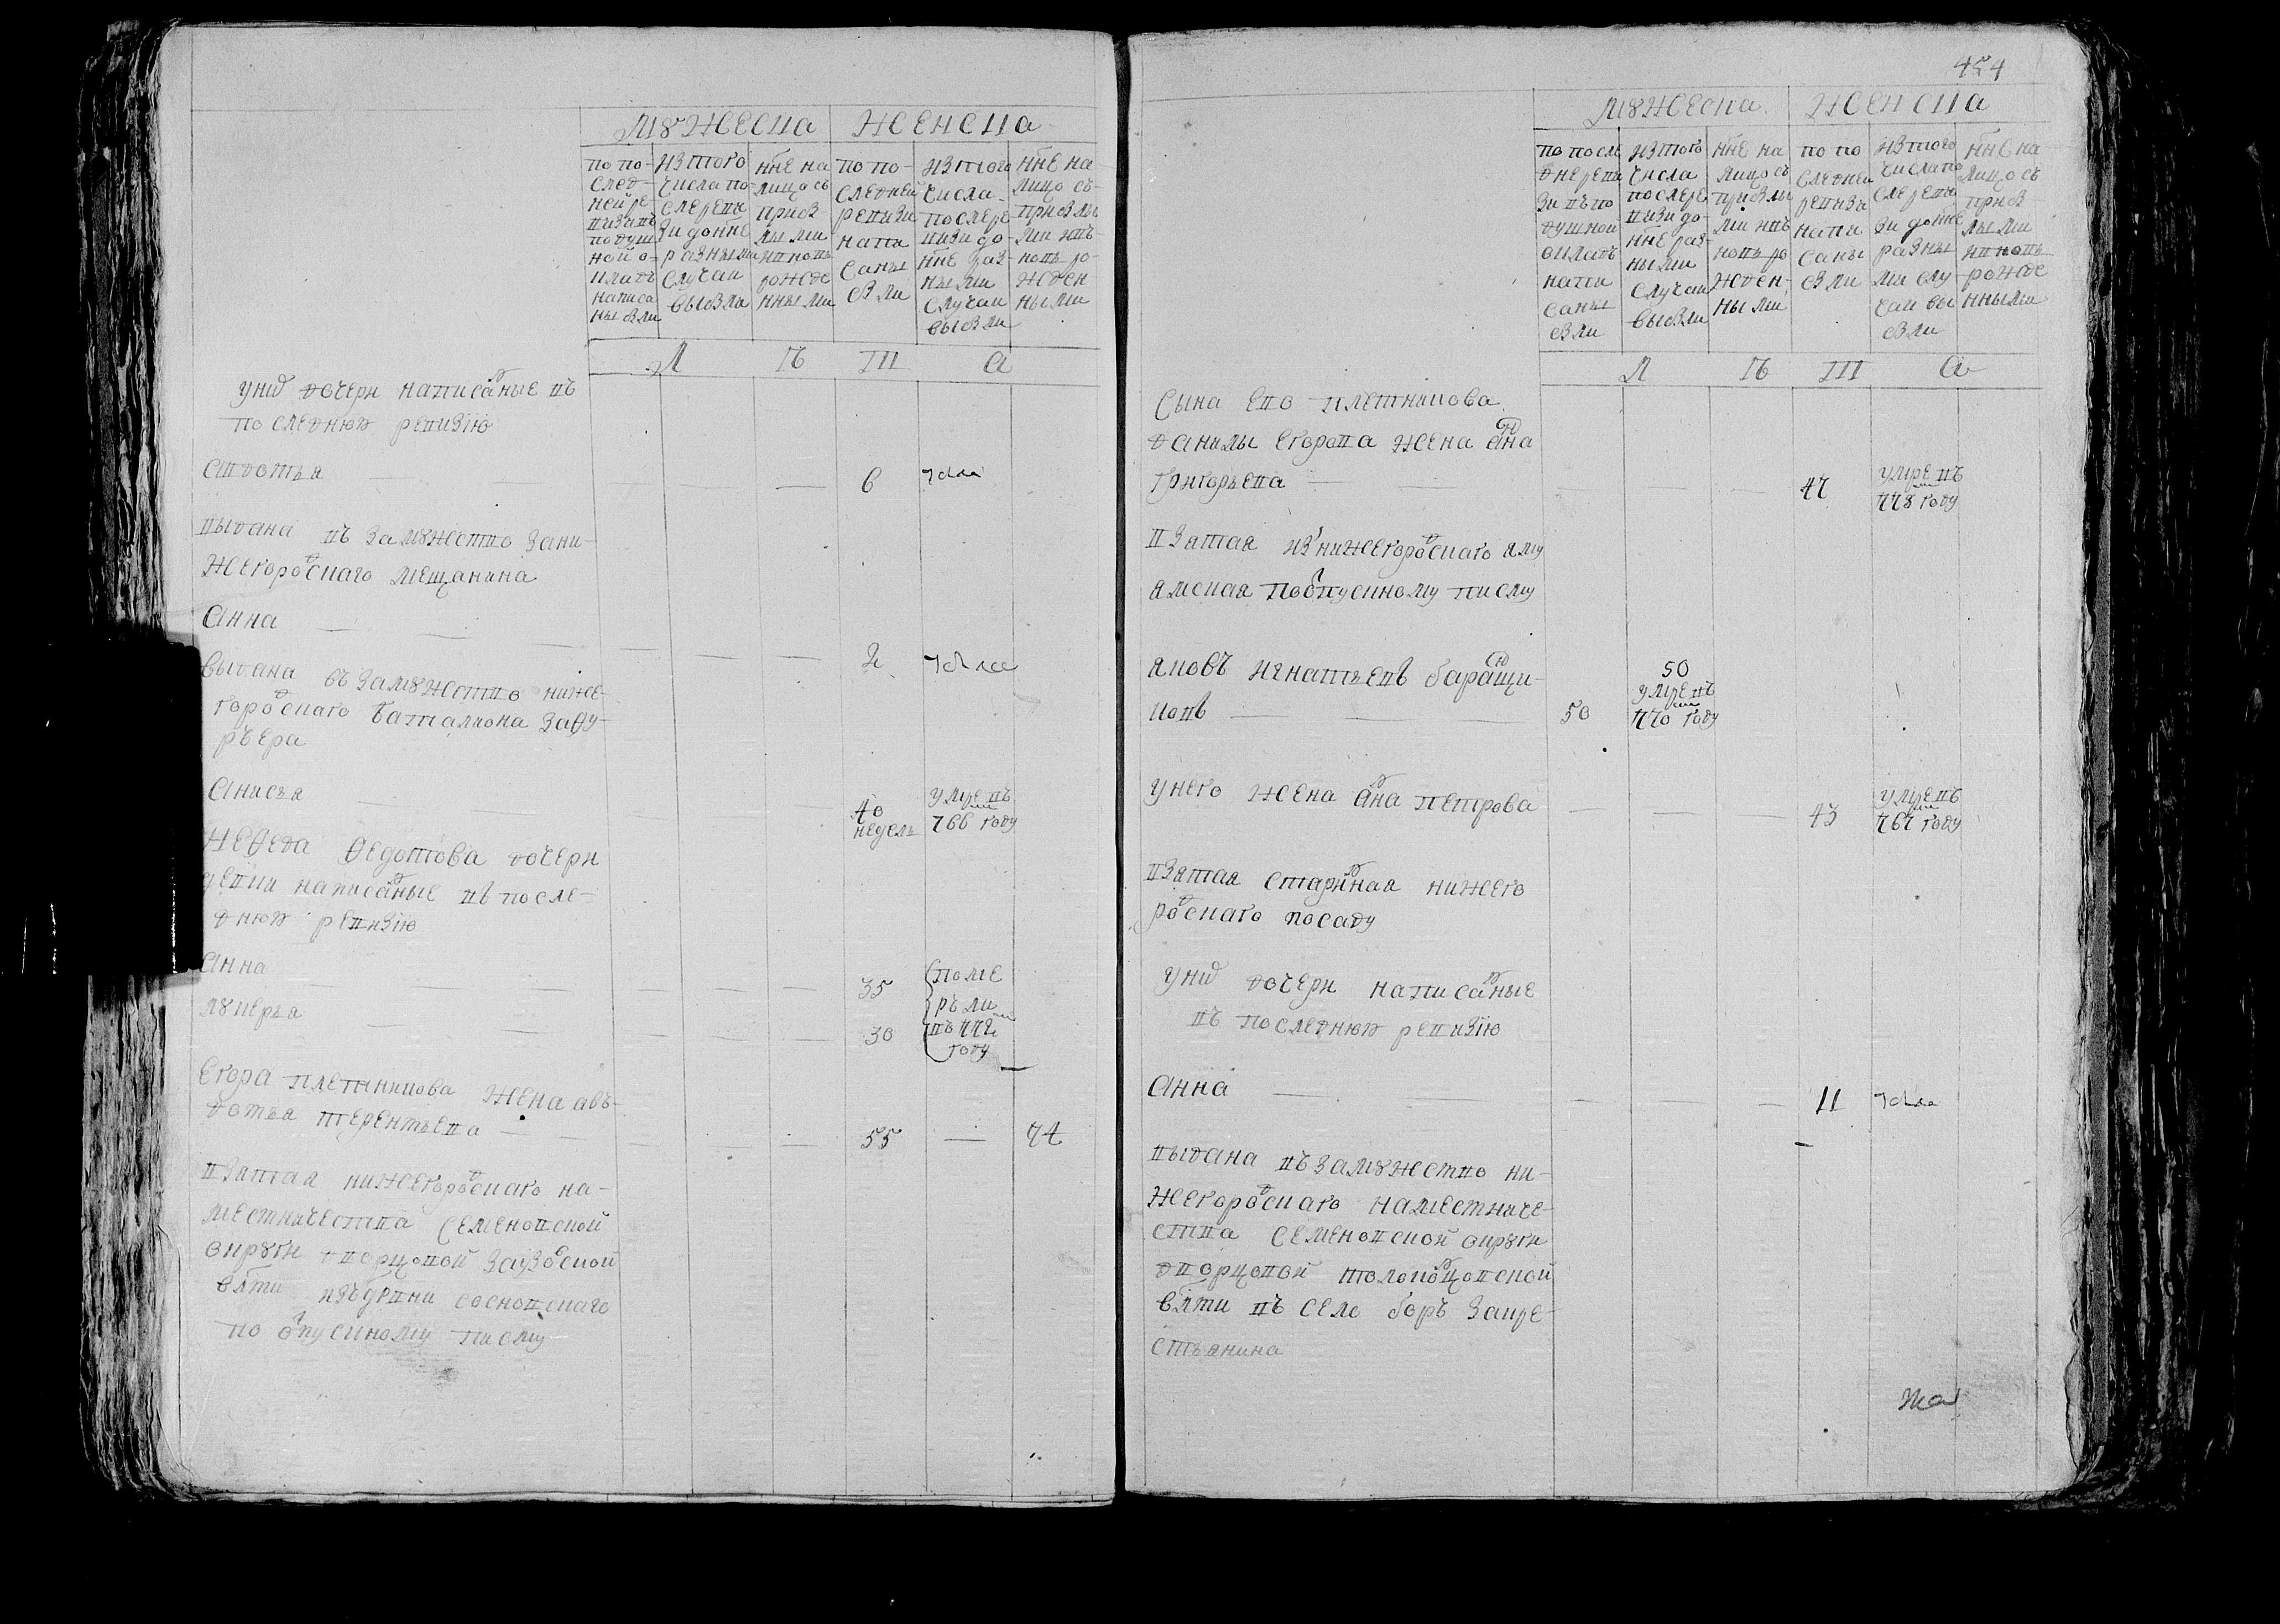 мужеска женска
по по-
след-
ней ре-
визиѣ въ
подуш
ной о-
кладъ
написа
ны были
из того
числа по-
сле реви
зи до нне
разными
случаи
выбыло
нне на
лицо съ
прибы
лыми
и вновь
рожде
нными
по по-
следней
ревизи
напи
саны
были
из того
числа
после ре
визи до-
нне раз-
ными
случаи
выбыли
нне на
лицо съ-
прибылы
ми и въ-
новь ро-
жден
ными
л ѣ т а
у них дочери написаные въ
последнюю ревизию
Авдотья 6
выдана въ замужество за ни-
жегородскаго мещанина
Анна 2
выдана въ замужество ниже-
городскаго баталиона за фу-
рьера
Анисья 40 недель умре въ 766 году
Нефеда Федотова дочери
девки написаные въ после-
днюю ревизию
Анна 35
Лукерья 30
поме
рьли
въ 772
году
Егора Плетникова жена Авъ-
дотья Терентьева 55 74
взятая нижегородскаго на-
местничества Семеновской
округи дворцовой Заузолской
влти изъ дрвни Сосновскаго
по отпускному писму
454
мужеска женска
по после
дне реви
зи въ по
душной
окладъ
напи
саны
были
из того
числа
после ре
визи до-
нне раз-
ными
случаи
выбыли
нне на
лицо съ
прибылы
ми и въ
новь ро
жден-
ными
по по
следней
ревизи
напи
саны
были
из того
числа по
сле реви
зи до нне
разны
ми слу
чаи вы
были
нне на
лицо съ
приб
лыми
и вновь
рожде
нными
л ѣ т а
Сына ево Плетникова
Данилы Егорова жена Анна
Григорьева 47 умре въ 778 году
взятая из нижегородскаго яму
ямская по отпускному писму
Яковъ Игнатьевъ Баращи-
ковъ 50 50 умре въ 770 году
у него жена Анна Петрова 43 умре въ 767 году
взятая старинная нижего
родскаго посаду
у них дочери написаные
въ последнюю ревизию
Анна 11
выдана въ замужество ни-
жегородскаго наместниче-
ства Семеновской округи
дворцовой Толоконцовской
влти въ село Боръ за кре-
стьянина